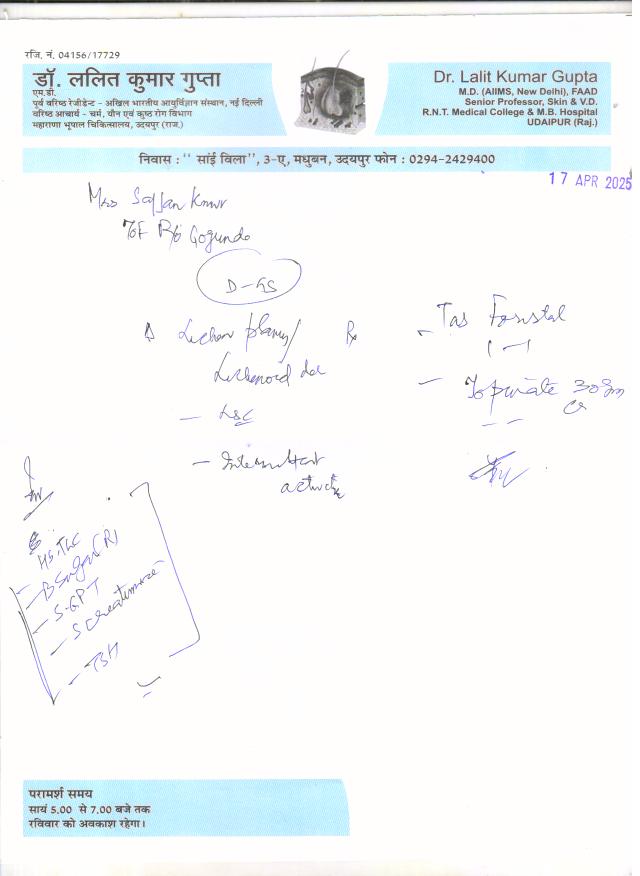 रजि. नं. 04156/17729
डॉ. ललित कुमार गुप्ता
एम.डी.
पूर्व वरिष्ठ रेजीडेन्ट - अखिल भारतीय आयुर्विज्ञान संस्थान, नई दिल्ली
वरिष्ठ आचार्य - चर्म, यौन एवं कुष्ठ रोग विभाग
महाराणा भूपाल चिकित्सालय, उदयपुर (राज.)
Dr. Lalit Kumar Gupta
M.D. (AIIMS, New Delhi), FAAD
Senior Professor, Skin & V.D.
R.N.T. Medical College & M.B. Hospital
UDAIPUR (Raj.)
निवास : " सांई विला", 3-ए, मधुबन, उदयपुर फोन : 0294-2429400
17 APR 2025
Mrs Sajjan Knwr
R/o Gogunda
Lichen planus/
Lichenoid
- LSC
- Intermittent
Rx
- Tab
- Topivate 30gm
B Sugar (R)
- SGPT
- S Creatinine
परामर्श समय
सायं 5.00 से 7.00 बजे तक
रविवार को अवकाश रहेगा।